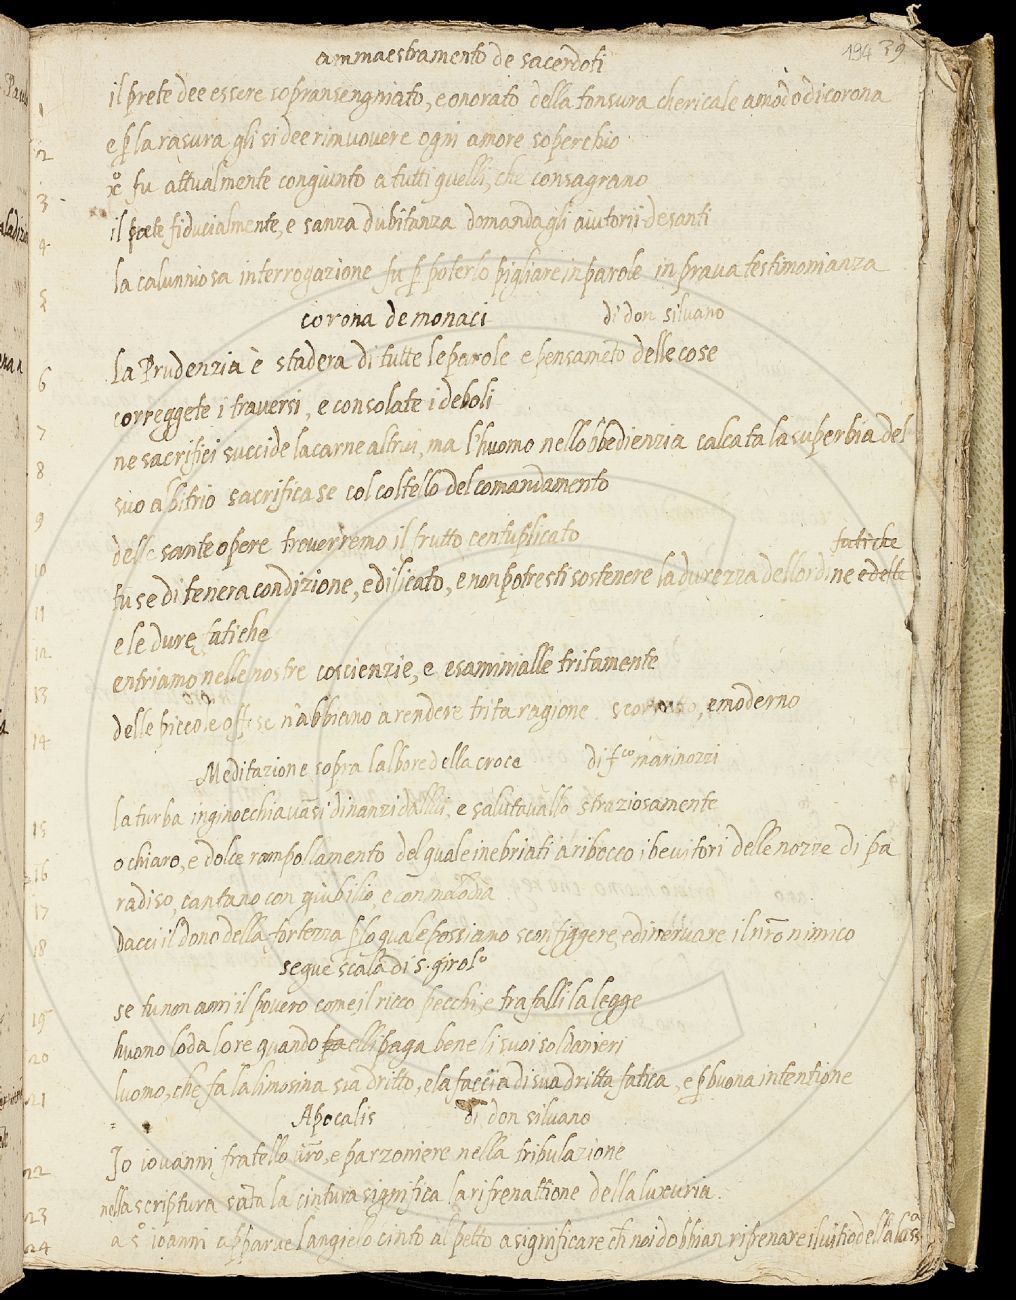 194 39
ammaestramento de sacerdoti
1 il prete dee essere sopransengniato, e onorato della tonsura chericale a modo di corona
2 e p la rasura gli si dee rimuovere ogni amore soperchio
3 xº fu attualmente congiunto a tutti quelli, che consagrano
4 il prete fiducialmente, e sanza dubitanza domanda gli aiutorii de santi
5 la calunniosa interrogazione fu p poterlo pigliare in parole in prava testimonianza
corona de monaci di don siluano
6 La Prudenzia è stadera di tutte le parole e pensamēto delle cose
7 correggete i traversi, e consolate i deboli
8 ne sacrifici succide la carne altrui, ma l'huomo nello bbedienzia calcata la superbia del
suo albitrio sacrifica se col coltello del comandamento
9 delle sante opere troverremo il frutto centuplicato
fatiche
10 tu se di tenera condizione, e dilicato, e non potresti sostenere la durezza dell ordine e delle
11 e le dure fatiche
12 entriamo nelle nostre coscienzie, e esaminialle tritamente
13 delle picciole offese n'abbiano a rendere trita ragione scorretto, e moderno
14 Meditazione sopra l albore della croce di fco marinozzi
la turba inginocchiavāsi dinanzi dallui, e salutavallo straziosamente
15 o chiaro, e dolce rampollamento del quale inebriati a ribocco i bevitori delle nozze di pa
16 radiso, cantano con giubilio, e con
17 Dacci il dono della fortezza p lo quale possiamo sconfiggere, e dinervare il nrō nimico
18 segue scala di s. girolº
se tu non ami il povero come il ricco pecchi, e trafalli la legge
19 huomo loda l ore quando fa elli paga bene li suoi soldanieri
20 luomo, che fa la limosina sia dritto, e la faccia di sua dritta fatica, e p buona intentione
21 Apocalis di don siluano
Io iovanni fratello vrō, e parzoniere nella tribulazione
22 nella scriptura sāta la cintura significa la rifrenattione della luxuria.
23 a sº iovanni apparve l angielo cinto al petto a significare ch noi dobbian rifrenare il vitio della
24